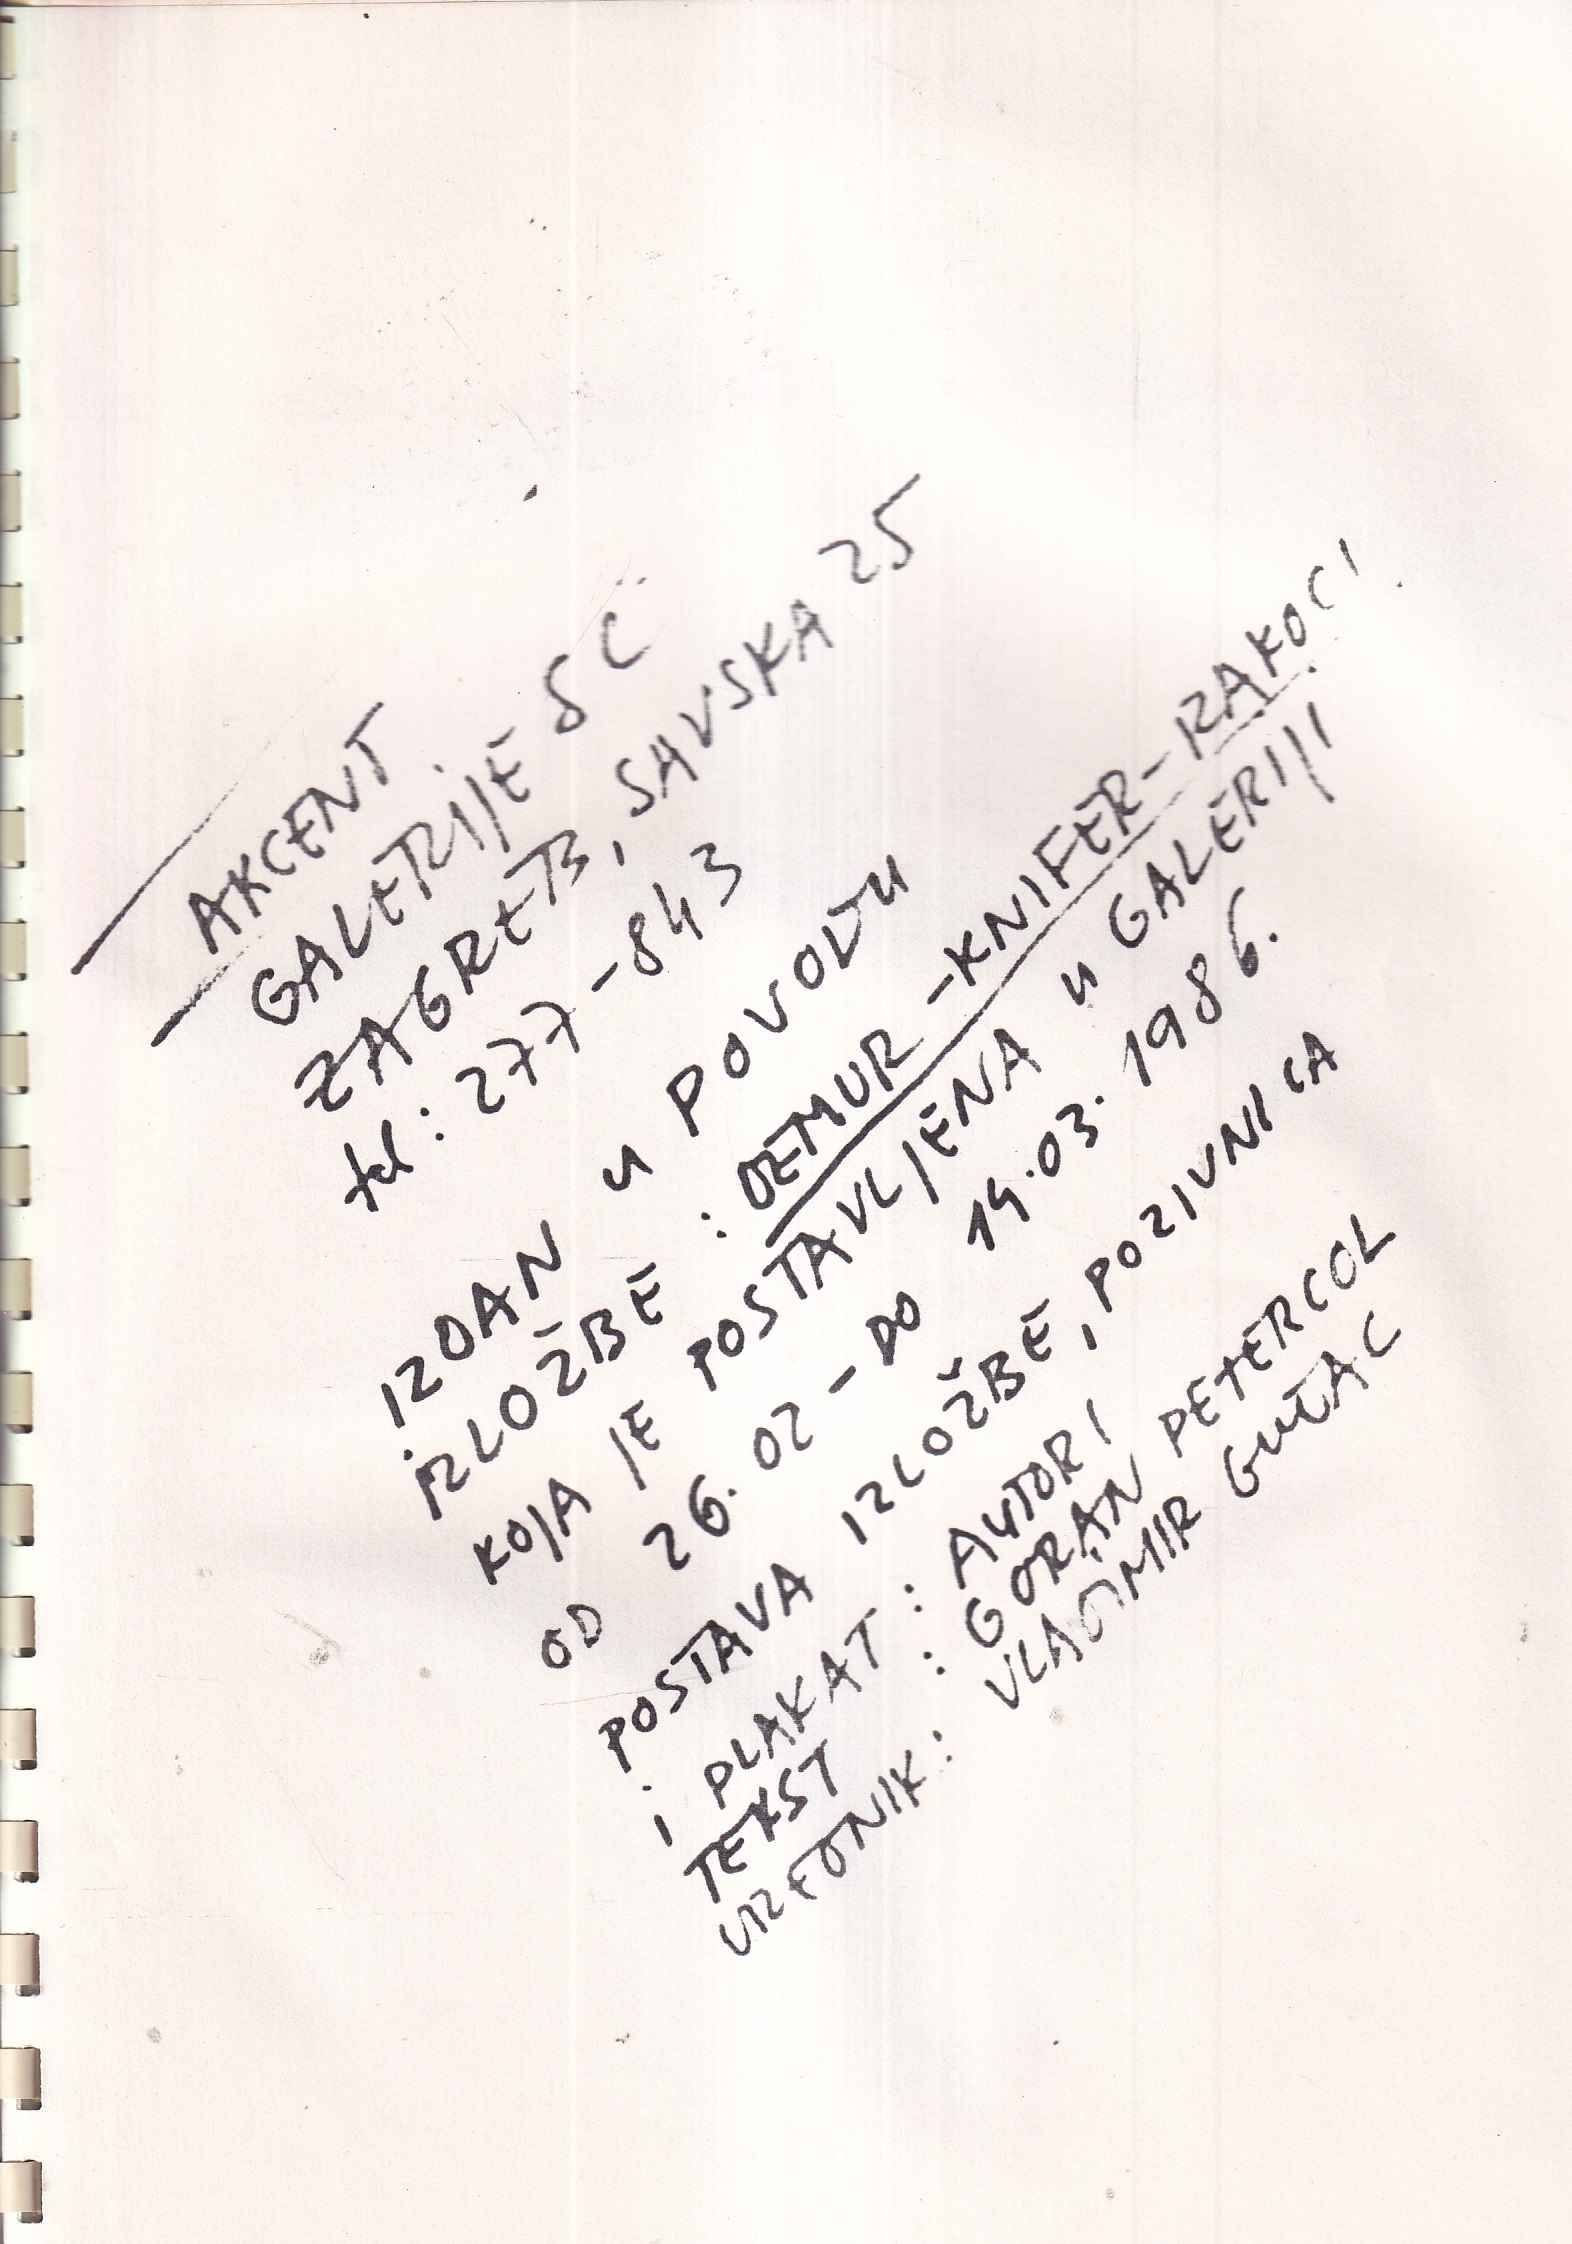 AKCENT
GALERIJE SC
ZAGREB, SAVSKA 25
tel: 277-843
IZDAN U POVODU
IZLOŽBE : DEMUR -KNIFER-RAKOCI
KOJA JE POSTAVLJENA U GALERIJI
OD 26. 02 - DO 19.03. 1986.
POSTAVA IZLOŽBE, POZIVNICA
I PLAKAT : AUTORI
TEKST : GORAN PETERCOL
VIZFONIK : VLADIMIR GUDAC